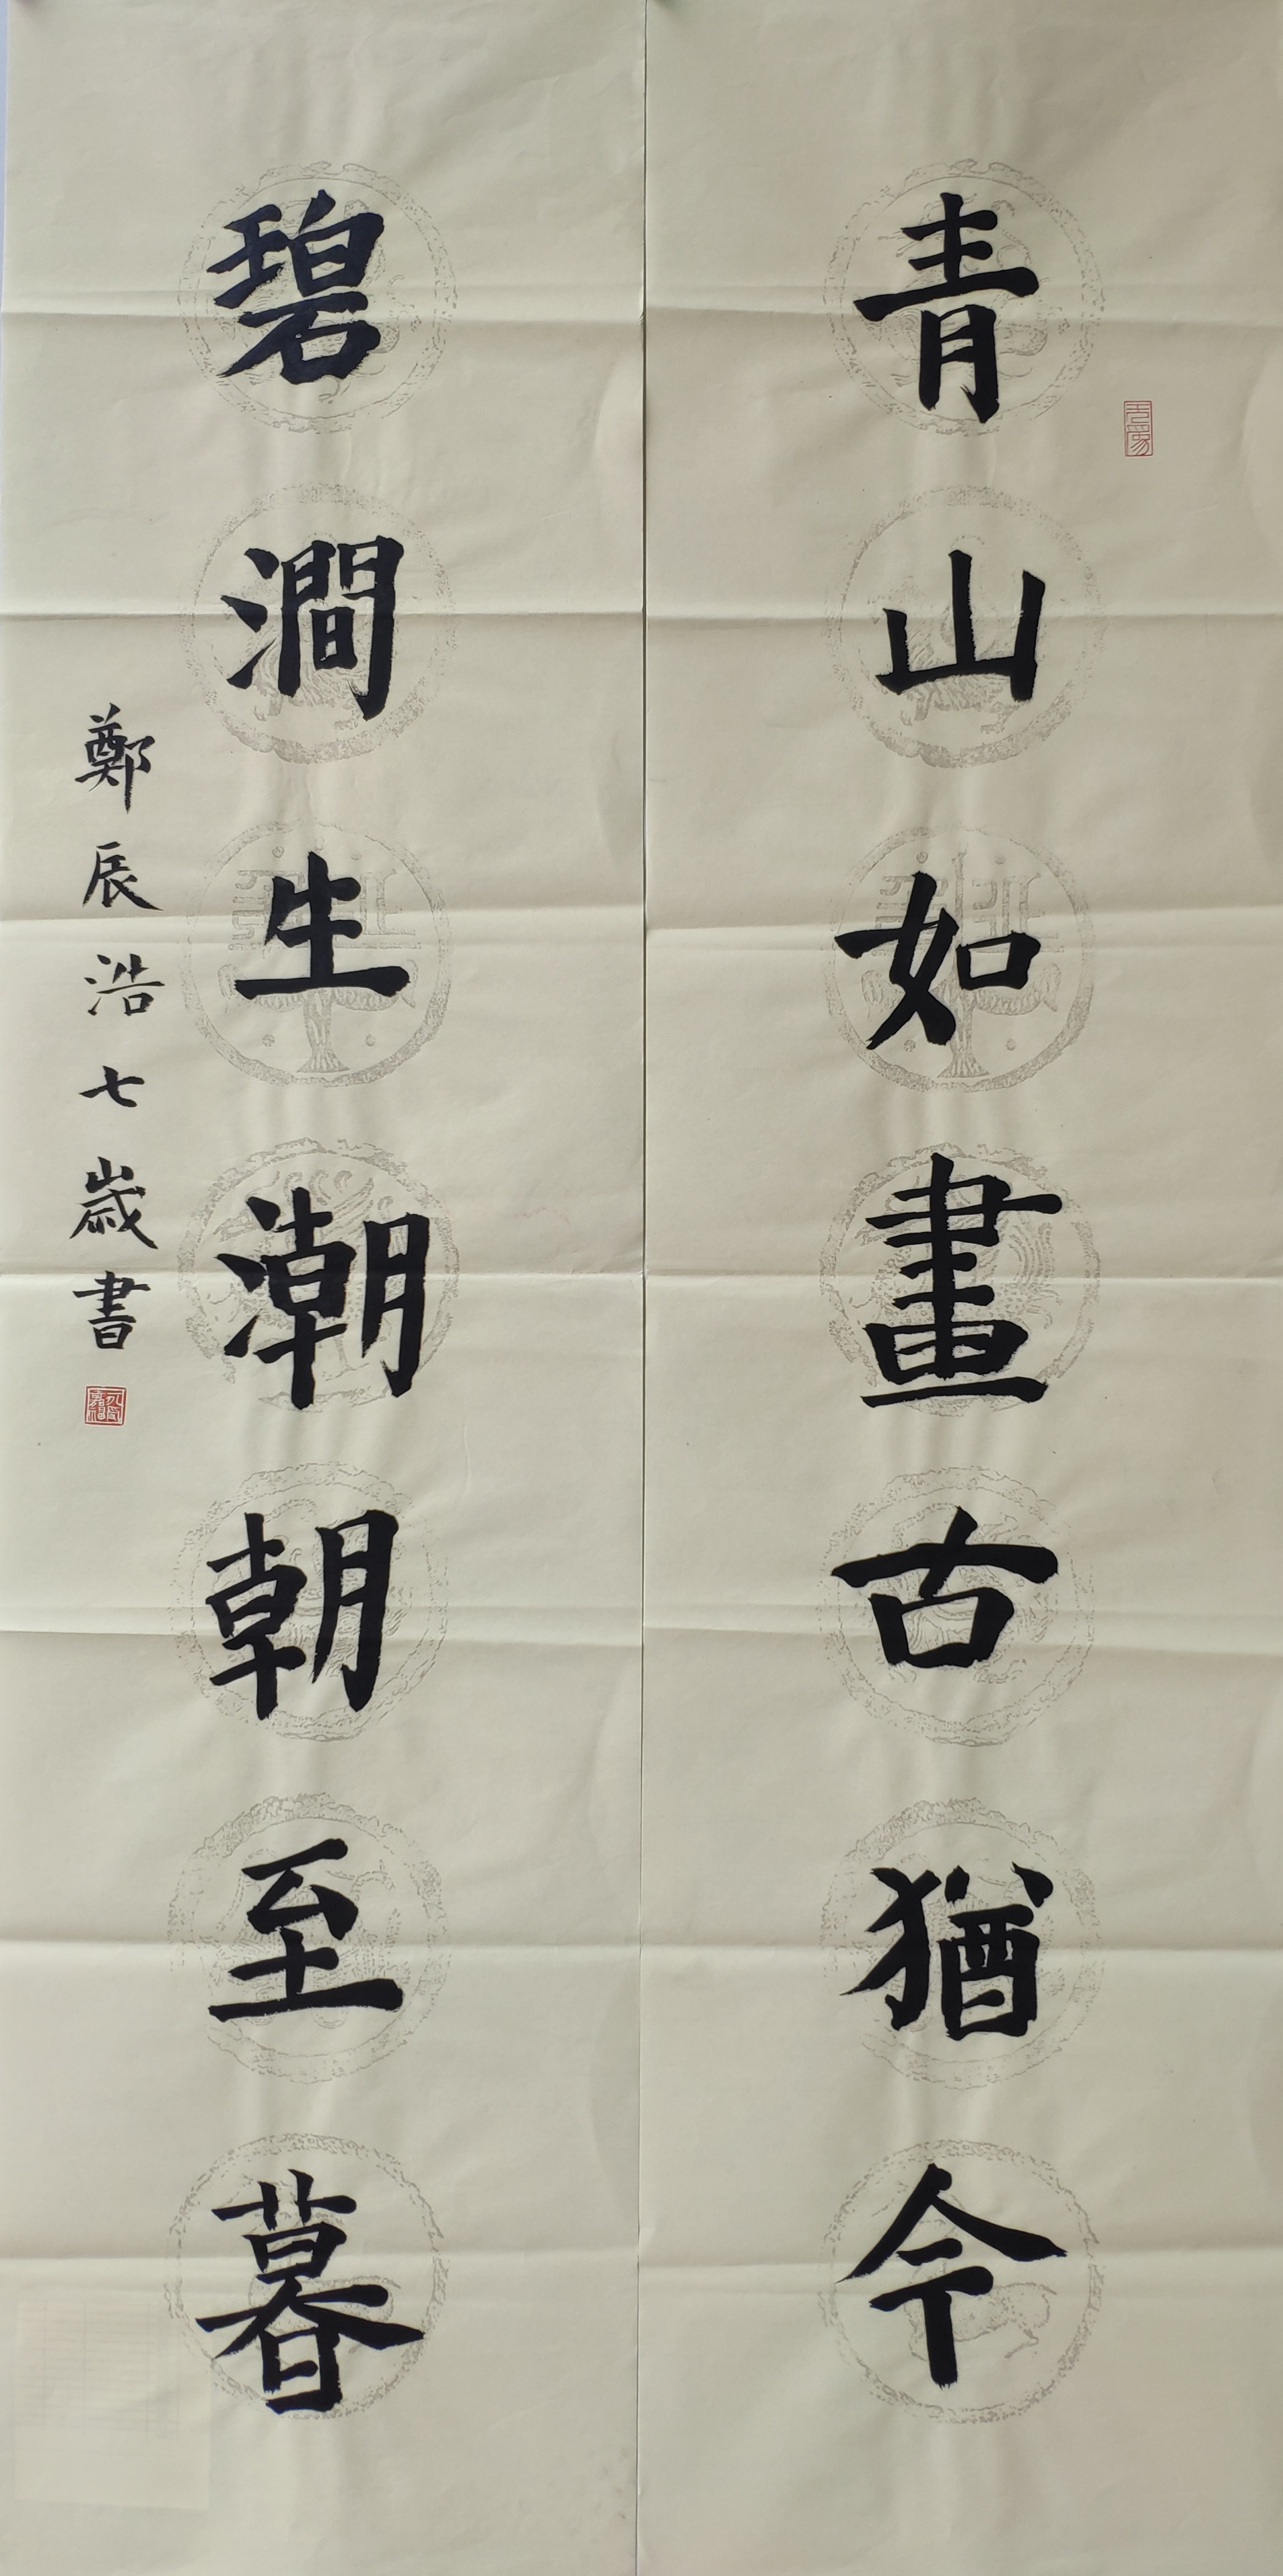 青山如畫古猶今
碧澗生潮朝至暮
鄭辰浩七歲書